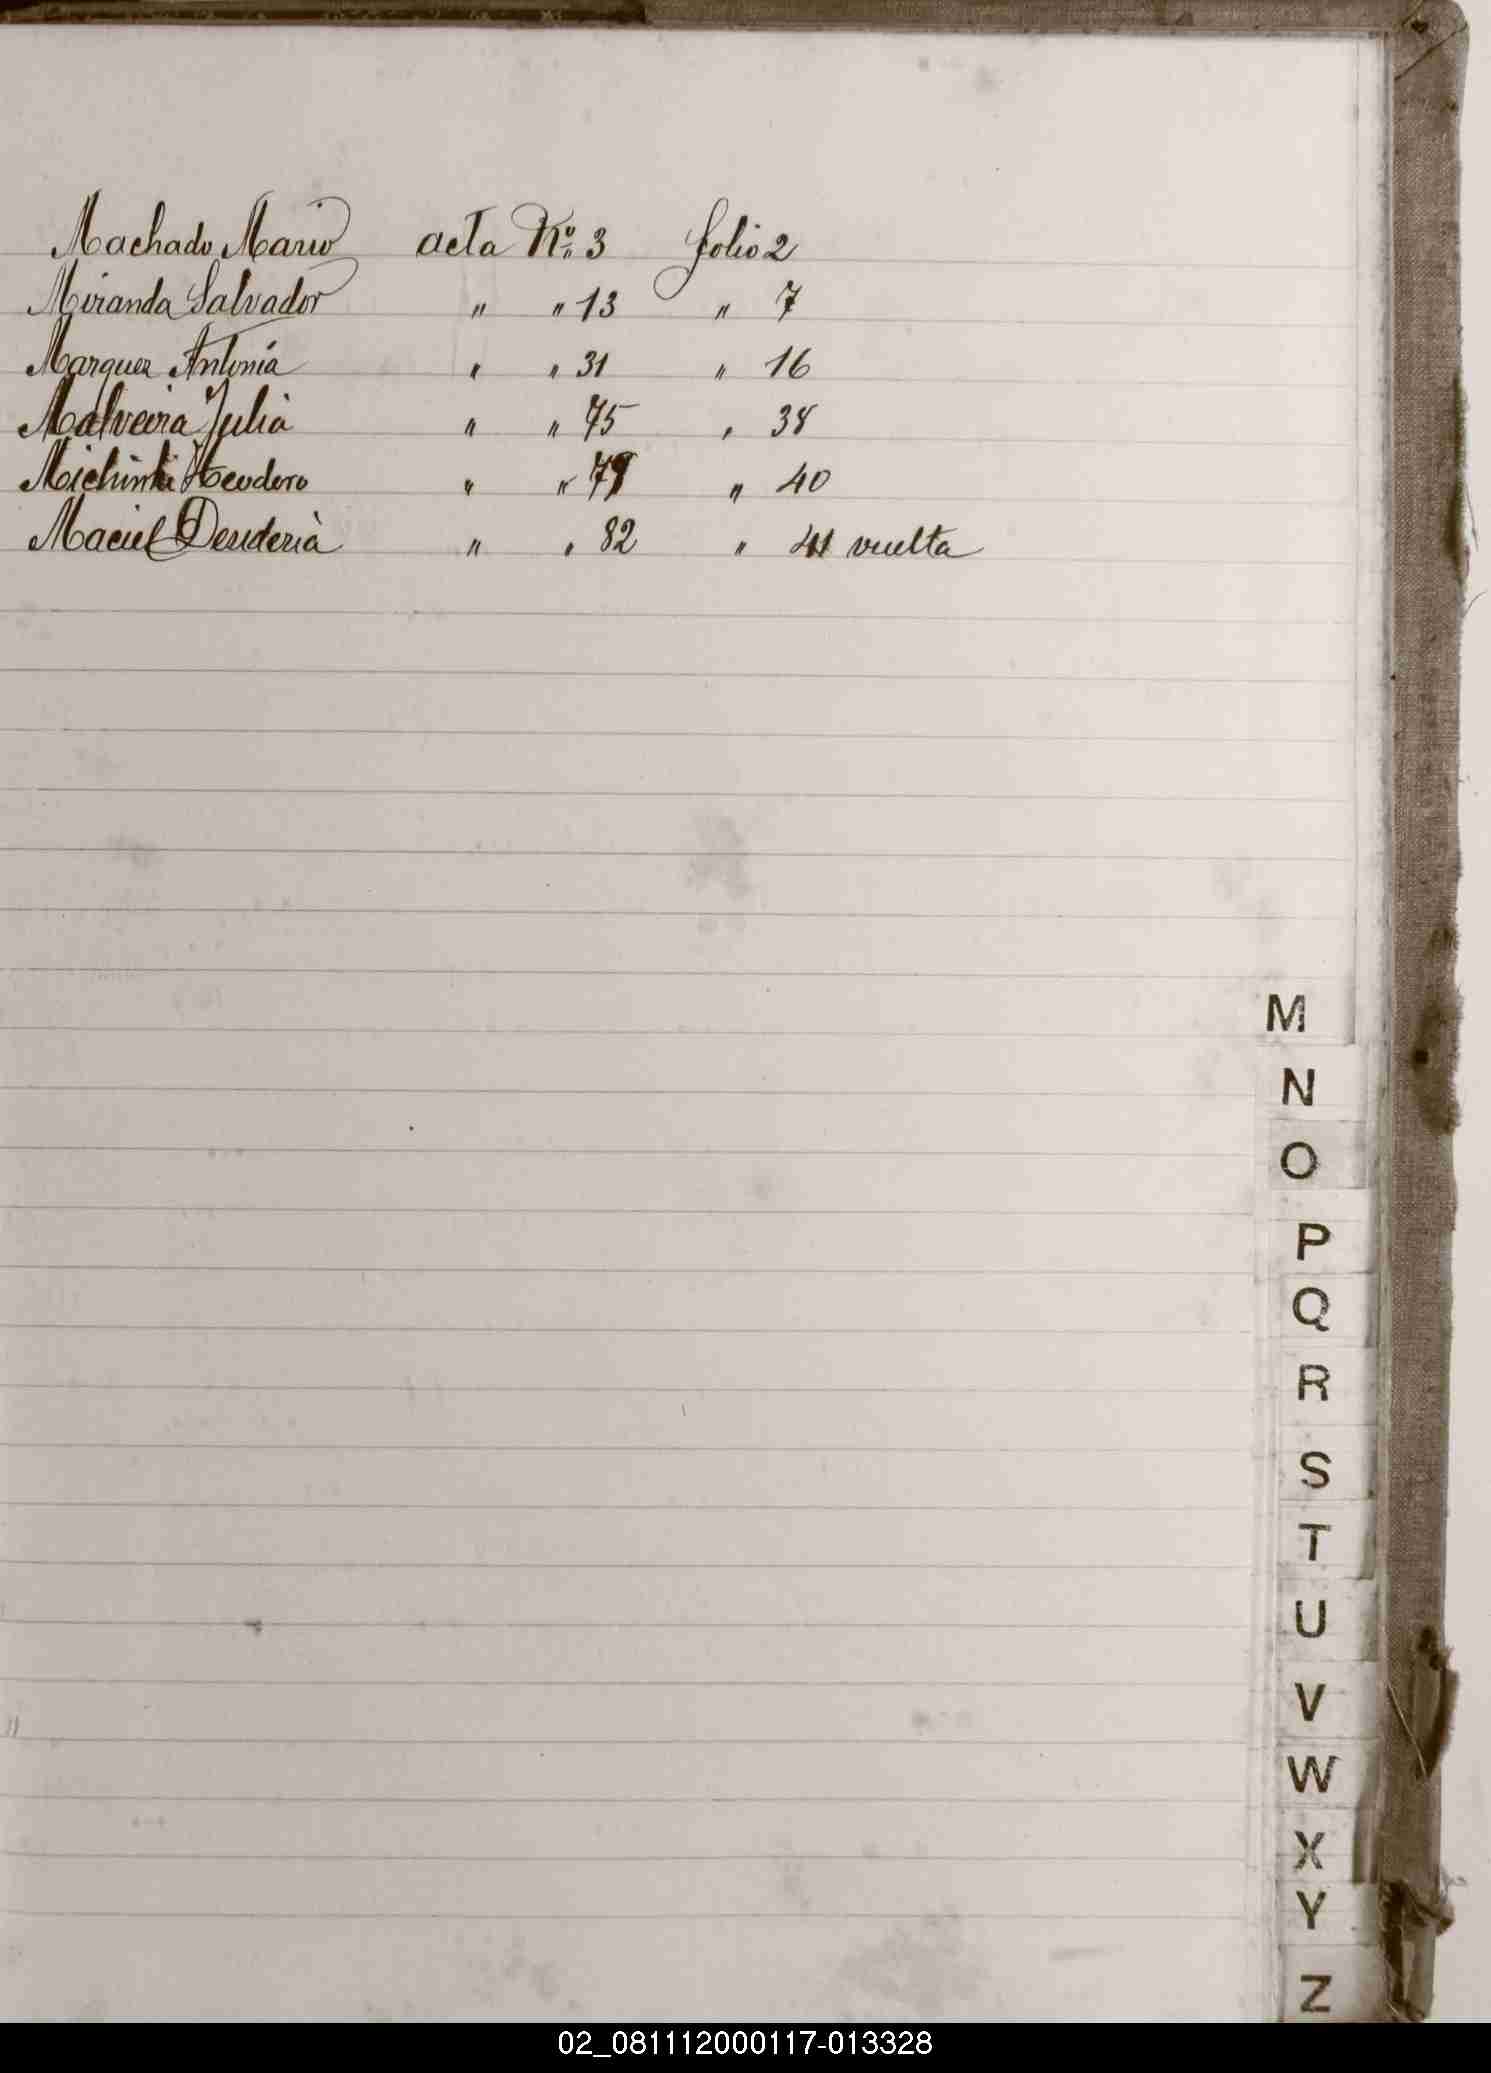 Machado Mario acta Nº 3 folio 2
Miranda Salvador " " 13 " 7
Marquez Antonia " " 31 " 16
Malveira Julia " " 75 " 38
Teodoro " " 79 " 40
Maciel Desideria " " 82 " 41 vuelta
M
N
O
P
Q
R
S
T
U
V
W
X
Y
Z
02_081112000117-013328